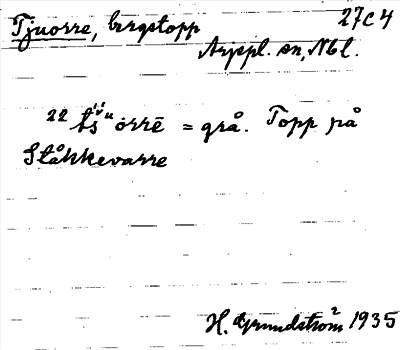 Tjuorre, bergstopp 27C4
Arjepl. sn, Nbl.
22 tṡ́ⁱᵛᵘ órrē = grå. Topp på
Ståkkevarre
H. Grundström 1935